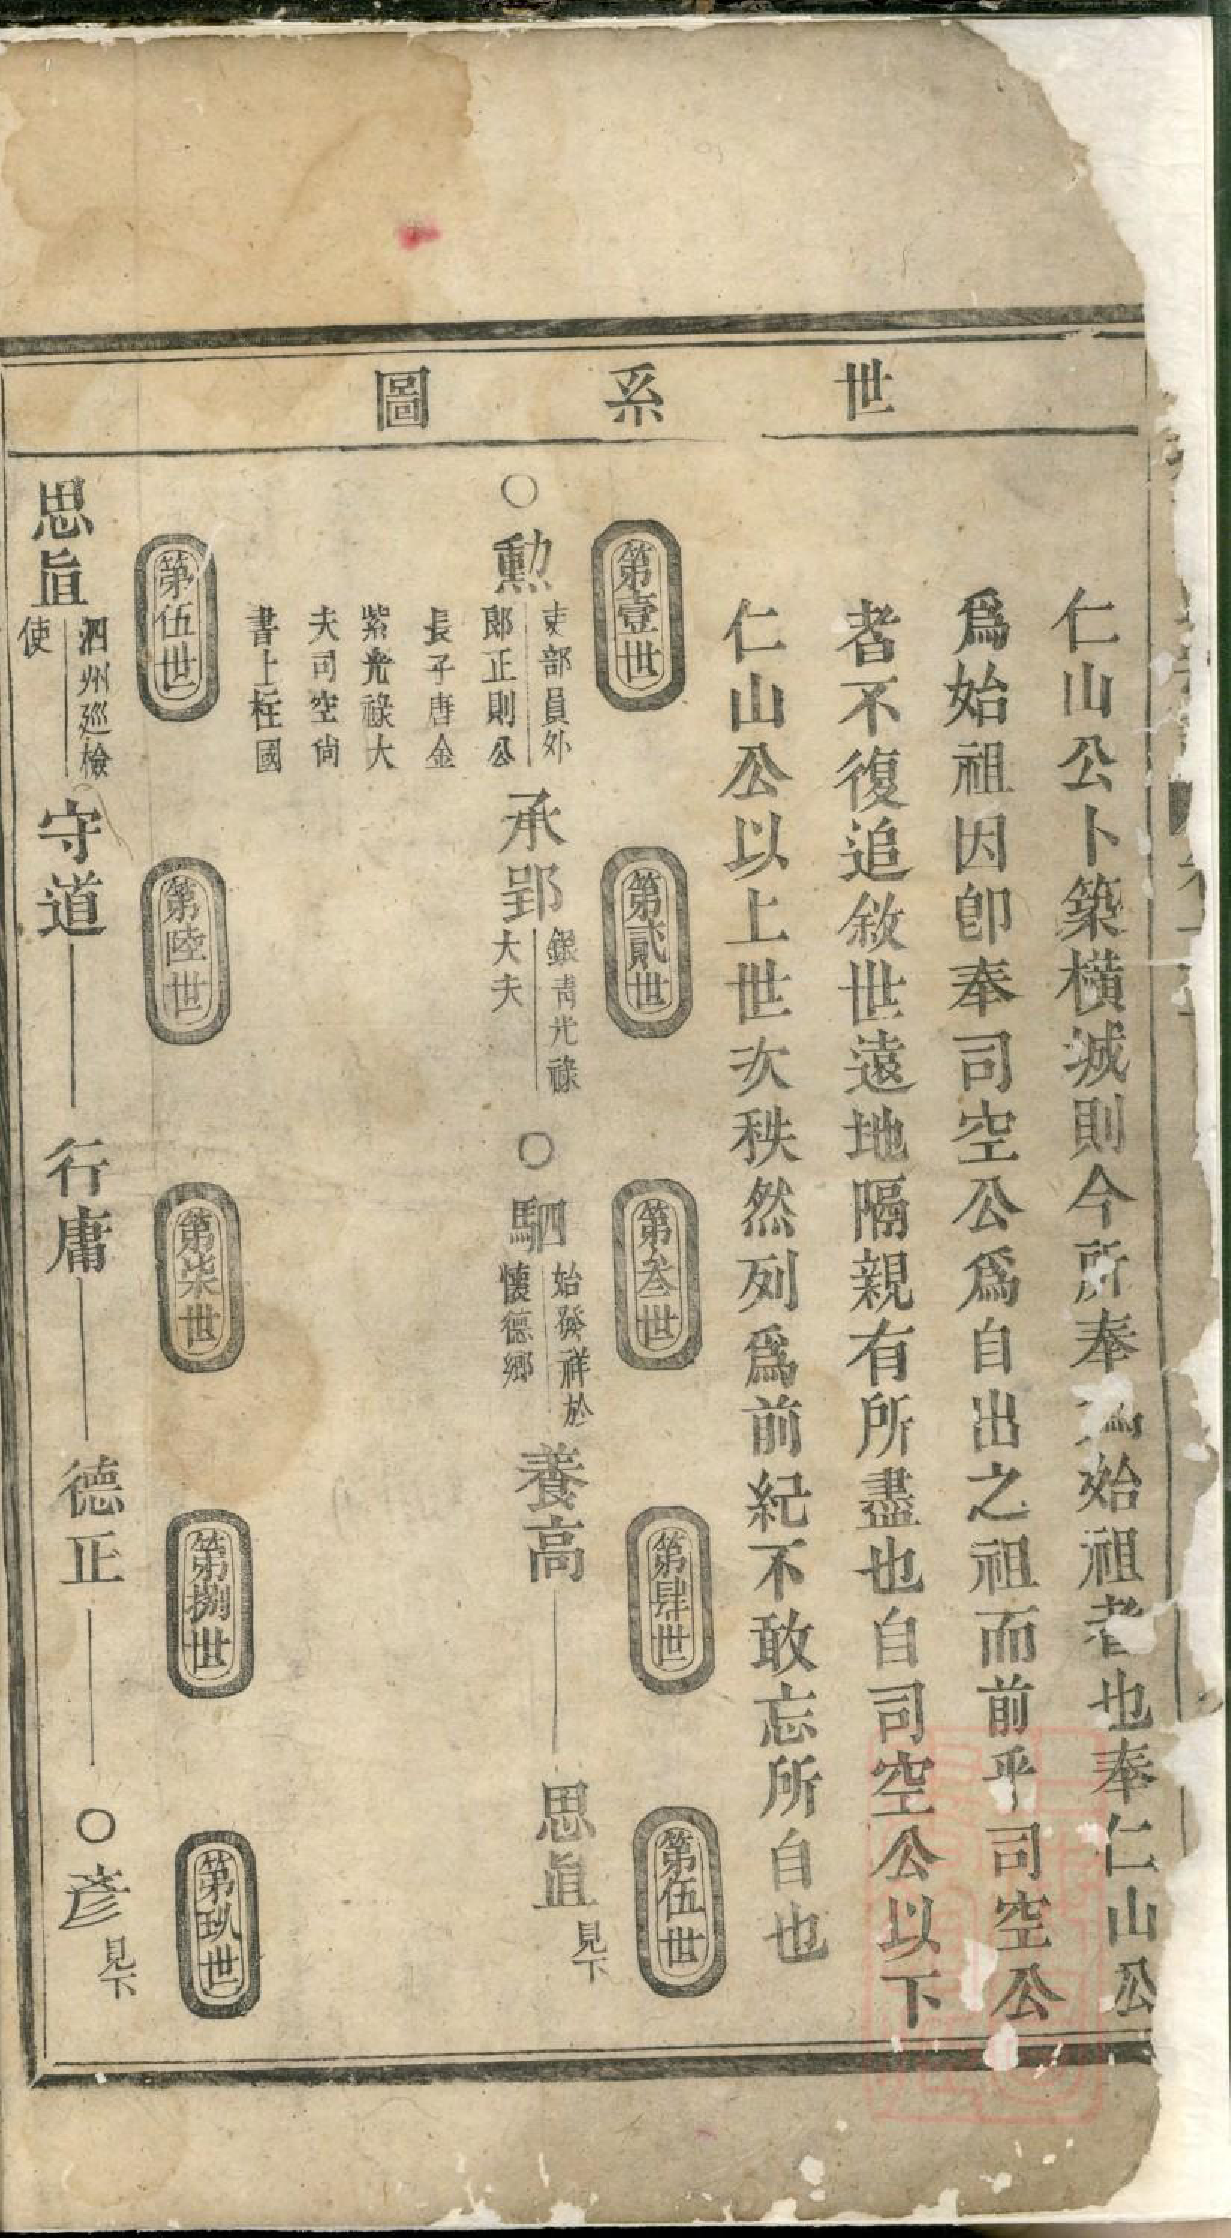 世系圖
仁山公卜築橫城則今所奉爲始祖者也奉仁山公
爲始祖因卽奉司空公爲自出之祖而前乎司空公
者不復追敘世遠地隔親有所盡也自司空公以下
仁山公以上世次秩然列爲前紀不敢忘所自也
第壹世
第貳世
第叁世
第肆世
第伍世
○勳
吏部員外
郎正則公
長子唐金
紫光祿大
夫司空尙
書上柱國
承郢
銀靑光祿
大夫
○駟
始發祥於
懷德鄉
養高
思眞
見下
第伍世
第陸世
第柒世
第捌世
第玖世
思眞
泗州廵檢
使
守道
行庸
德正
○彦
見下